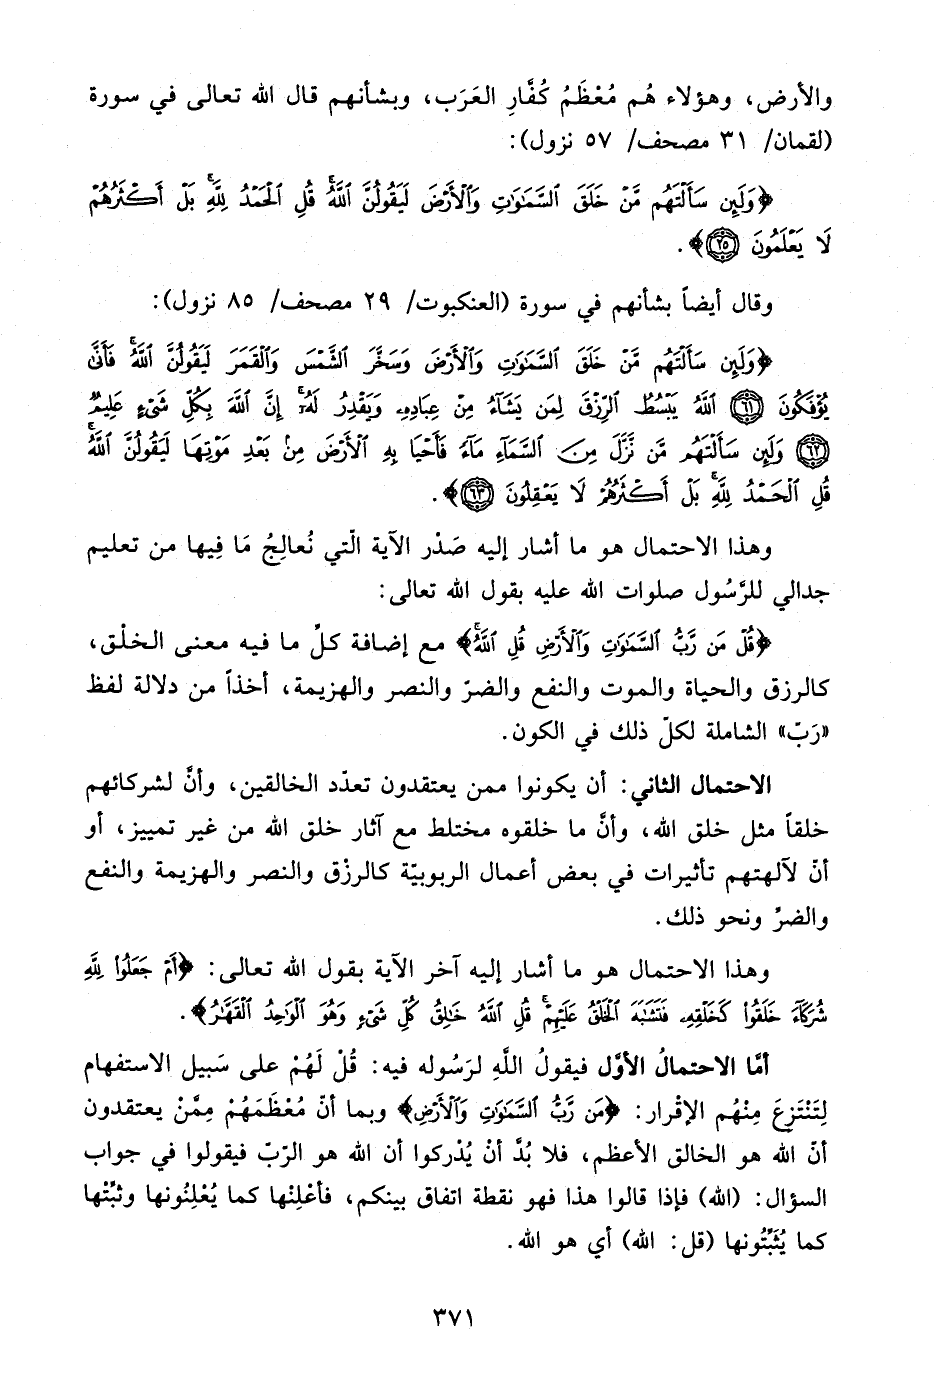 والأرض، وهؤلاء هُم مُعْظَمُ كُفَّارِ العَرَب، وبشأنهم قال الله تعالى في سورة
(لقمان/ ٣١ مصحف/ ٥٧ نزول):
﴿وَلَئِن سَأَلْتَهُم مَّنْ خَلَقَ ٱلسَّمَٰوَٰتِ وَٱلْأَرْضَ لَيَقُولُنَّ ٱللَّهُ ۚ قُلِ ٱلْحَمْدُ لِلَّهِ ۚ بَلْ أَكْثَرُهُمْ
لَا يَعْلَمُونَ ٢٥﴾.
وقال أيضاً بشأنهم في سورة (العنكبوت/ ٢٩ مصحف/ ٨٥ نزول):
﴿وَلَئِن سَأَلْتَهُم مَّنْ خَلَقَ ٱلسَّمَٰوَٰتِ وَٱلْأَرْضَ وَسَخَّرَ ٱلشَّمْسَ وَٱلْقَمَرَ لَيَقُولُنَّ ٱللَّهُ ۖ فَأَنَّىٰ
يُؤْفَكُونَ ٦١ ٱللَّهُ يَبْسُطُ ٱلرِّزْقَ لِمَن يَشَآءُ مِنْ عِبَادِهِۦ وَيَقْدِرُ لَهُۥٓ ۚ إِنَّ ٱللَّهَ بِكُلِّ شَىْءٍ عَلِيمٌ
٦٢ وَلَئِن سَأَلْتَهُم مَّن نَّزَّلَ مِنَ ٱلسَّمَآءِ مَآءً فَأَحْيَا بِهِ ٱلْأَرْضَ مِنۢ بَعْدِ مَوْتِهَا لَيَقُولُنَّ ٱللَّهُ ۚ
قُلِ ٱلْحَمْدُ لِلَّهِ ۚ بَلْ أَكْثَرُهُمْ لَا يَعْقِلُونَ ٦٣﴾.
وهذا الاحتمال هو ما أشار إليه صَدْر الآية الّتي نُعالِجُ مَا فِيها من تعليم
جدالي للرَّسُول صلوات الله عليه بقول الله تعالى:
﴿قُلْ مَن رَّبُّ ٱلسَّمَٰوَٰتِ وَٱلْأَرْضِ قُلِ ٱللَّهُ ۚ﴾ مع إضافة كلِّ ما فيه معنى الخلْق،
كالرزق والحياة والموت والنفع والضرّ والنصر والهزيمة، أخذاً من دلالة لفظ
«رَبّ» الشاملة لكلّ ذلك في الكون.
الاحتمال الثاني: أن يكونوا ممن يعتقدون تعدّد الخالقين، وأنَّ لشركائهم
خلقاً مثل خلق الله، وأنَّ ما خلقوه مختلط مع آثار خلق الله من غير تمييز، أو
أنّ لآلهتهم تأثيرات في بعض أعمال الربوبيّة كالرزْق والنصر والهزيمة والنفع
والضرِّ ونحو ذلك.
وهذا الاحتمال هو ما أشار إليه آخر الآية بقول الله تعالى: ﴿أَمْ جَعَلُوا۟ لِلَّهِ
شُرَكَآءَ خَلَقُوا۟ كَخَلْقِهِۦ فَتَشَٰبَهَ ٱلْخَلْقُ عَلَيْهِمْ ۚ قُلِ ٱللَّهُ خَٰلِقُ كُلِّ شَىْءٍ وَهُوَ ٱلْوَٰحِدُ ٱلْقَهَّٰرُ﴾.
أمَّا الاحتمالُ الأوَّل فيقولُ اللَّهِ لرَسُوله فيه: قُلْ لَهُمْ على سَبيل الاستفهام
لِتَنْتَزِعَ مِنْهُم الإقْرار: ﴿مَن رَّبُّ ٱلسَّمَٰوَٰتِ وَٱلْأَرْضِ﴾ وبما أنّ مُعْظَمَهُمْ مِمَّنْ يعتقدون
أنّ الله هو الخالق الأعظم، فلا بُدَّ أنْ يُدْركوا أن الله هو الرّبّ فيقولوا في جواب
السؤال: (الله) فإذا قالوا هذا فهو نقطة اتفاق بينكم، فأعْلِنْها كما يُعْلِنُونها وثبِّتْها
كما يُثَبِّتُونها (قل: الله) أي هو الله.
٣٧١